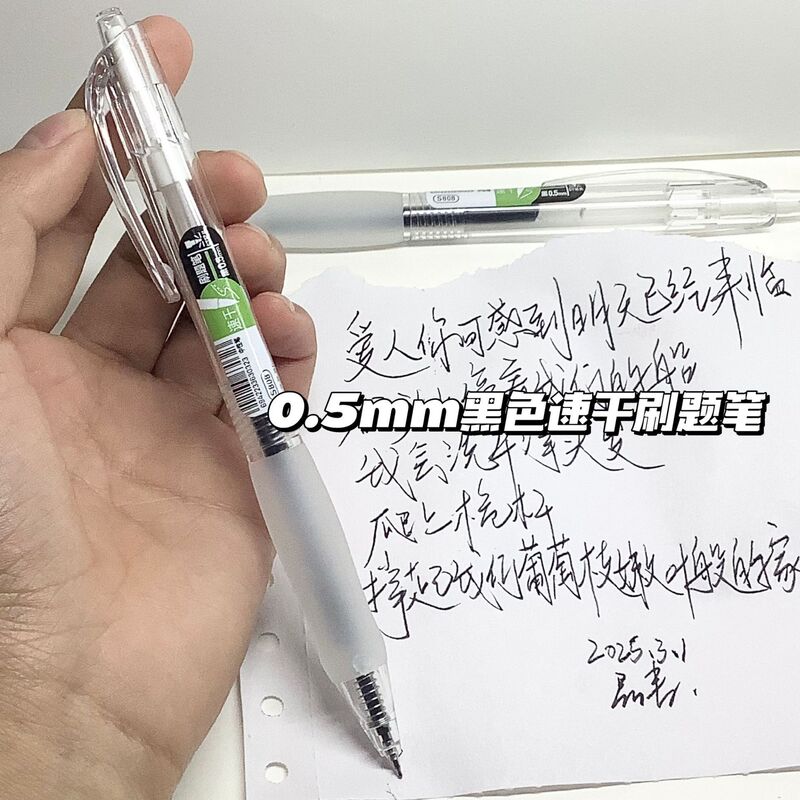 黑0.5mm
S808
速干
刷题笔
S808
6942233630323
爱人你可感到明天已经来临
0.5mm黑色速干刷题笔
我会洗干净头发
爬上桅杆
撑起我们葡萄枝嫩叶般的家
2025.3.1